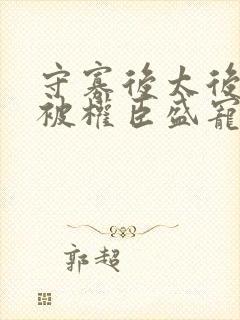 守寡後太後
被權臣盛寵
郭超